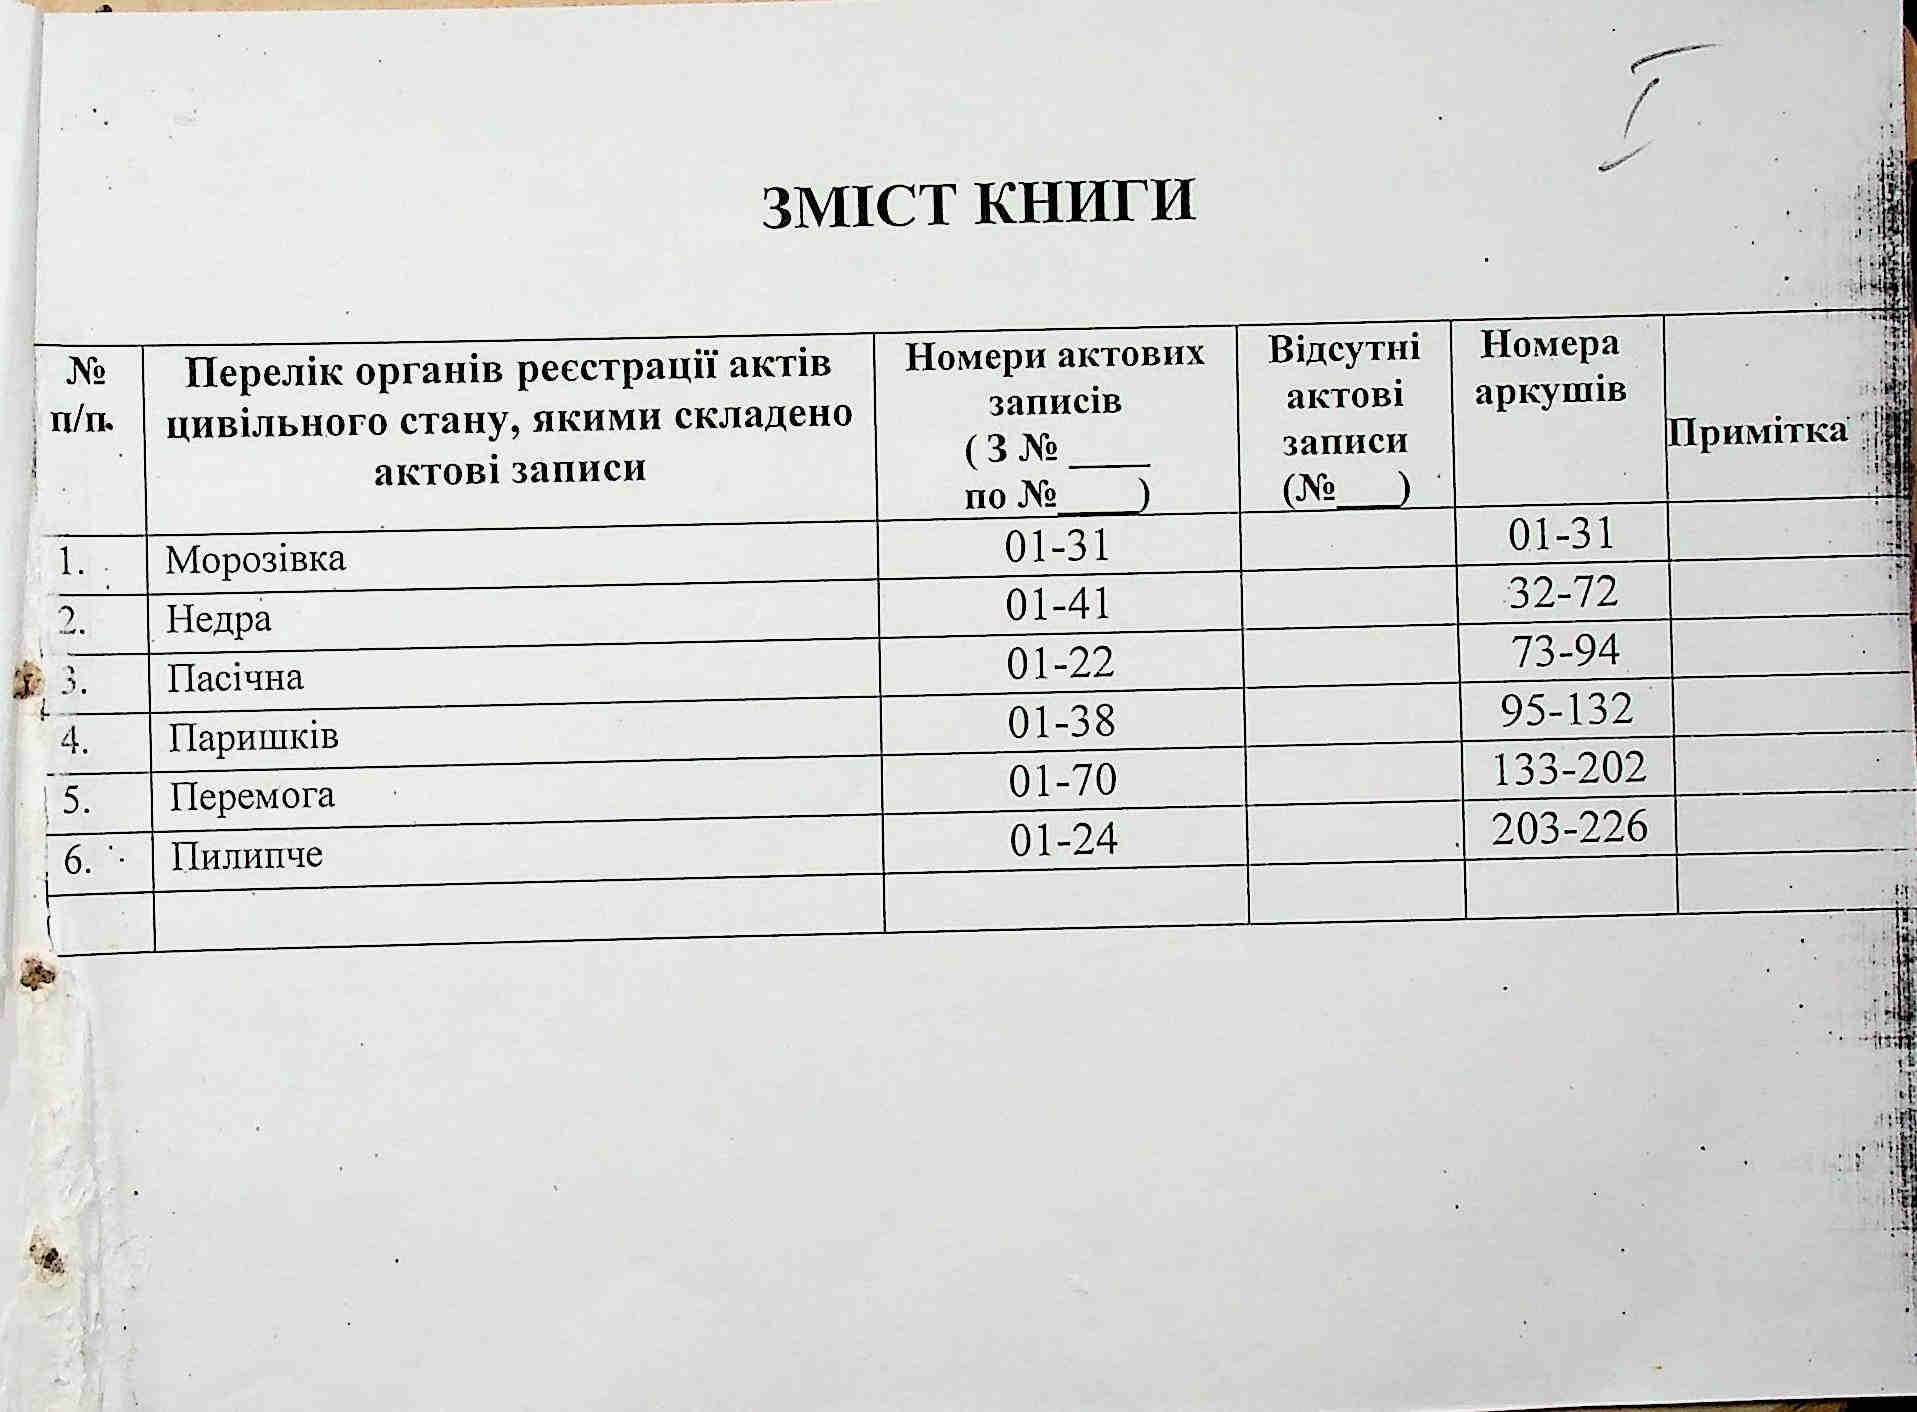 I
ЗМІСТ КНИГИ
№ п/п.
Перелік органів реєстрації актів
цивільного стану, якими складено
актові записи
Номери актових
записів
( З № ____
по №____)
Відсутні
актові
записи
(№___)
Номера
аркушів
Примітка
1. Морозівка 01-31 01-31
2. Недра 01-41 32-72
3. Пасічна 01-22 73-94
4. Паришків 01-38 95-132
5. Перемога 01-70 133-202
6. Пилипче 01-24 203-226